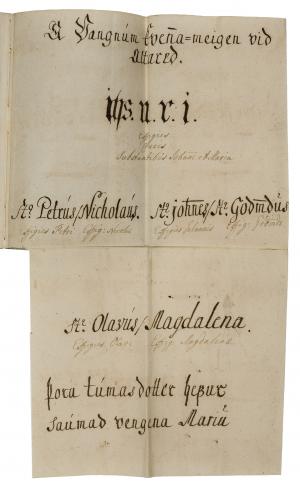 Á Vangnúm Kvena=meigen vid
Altared.
ihs. n. r. i.
effigies
Crucis
Substantibus Johani & Maria
Stꝰ. Petrús/Nicholaús. Stꝰ. johnes/Stꝰ. Godmdús
Effigies Petri Effig: Nicolai Effigies Johannis Effig:
Stꝰ. Olavús/Magdalena.
Effigies Olavi Effig: Magdalenæ
Þora túmas dotter hefur
saúmad vengena Mariú